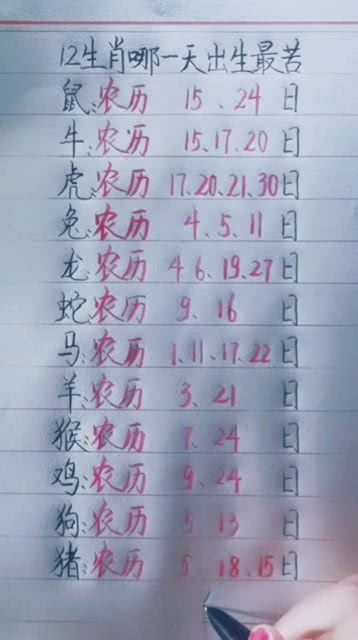 12生肖哪一天出生最苦
鼠:农历 15、24 日
牛:农历 15.17.20 日
虎:农历 17.20.21.30日
兔:农历 4、5.11 日
龙:农历 4.6、19.27日
蛇:农历 9、16 日
马:农历 1.11.17.22 日
羊:农历 3、21 日
猴:农历 7、24 日
鸡:农历 9、24 日
狗:农历 5、13 日
猪:农历 5、18.15日